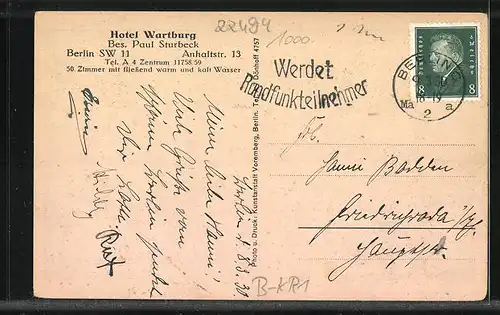 Hotel Wartburg
Bes. Paul Sturbeck
Berlin SW 11 Anhaltstr. 13
Tel. A 4 Zentrum 11758/59
50 Zimmer mit fließend warm und kalt Wasser
22494
1000.
Werdet
Rundfunkteilnehmer
BERLIN
2
a
8 8
Photo u. Druck: Kunstanstalt Voremberg, Berlin.
Berlin d. 8.3.30
Mein liebe Hanni!
Viele Grüße vom
schönen Berlin sendet
Dir
B-KR1
Frl.
Hanni Badden
Friedrichroda i/Th.
Hauptstr.